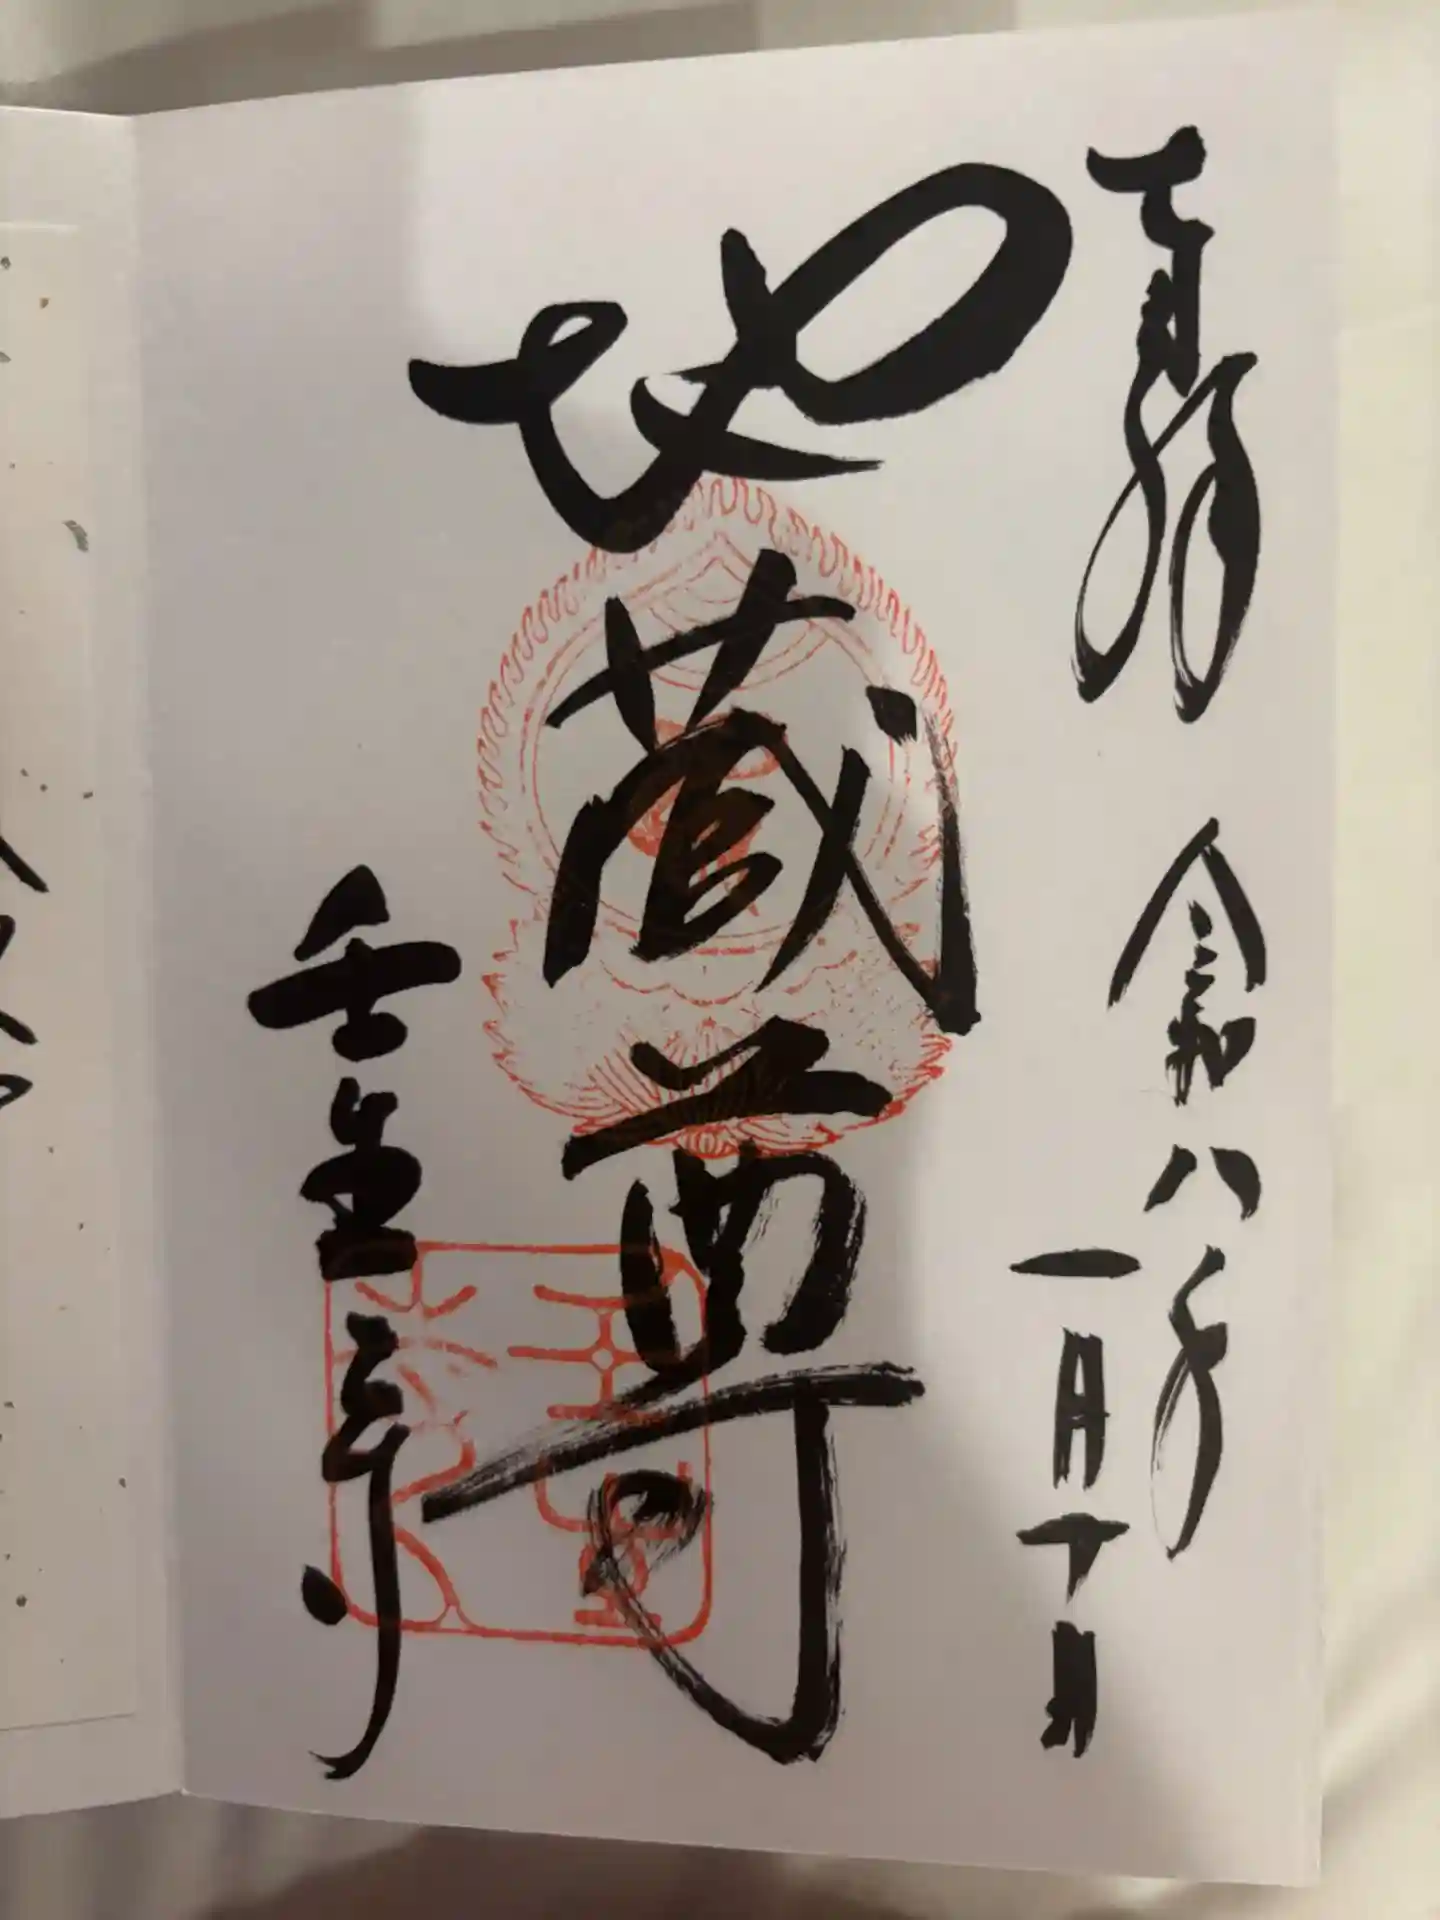 奉拝
令和八年
一月十日
地蔵尊
壬生寺